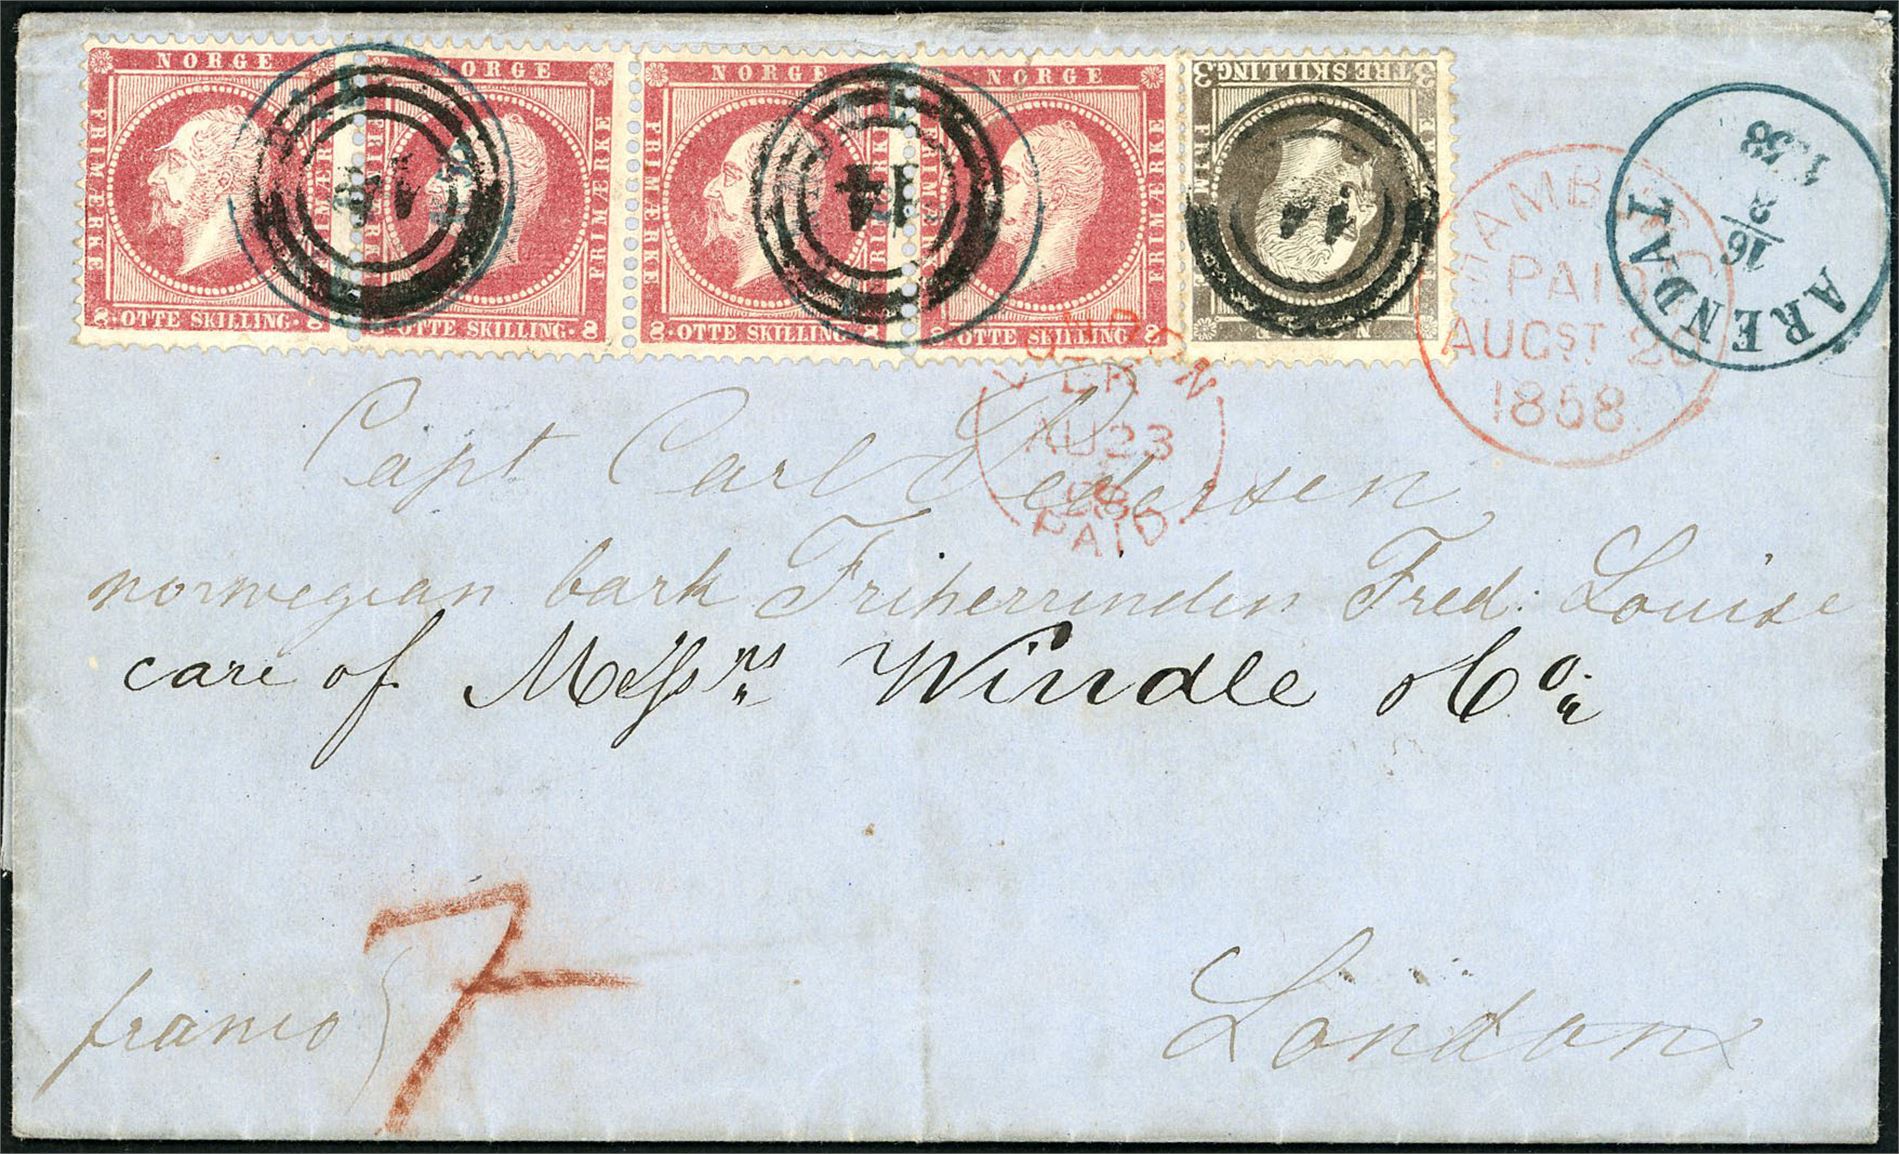 NORGE NORGE NORGE NORGE
FRIMÆRKE FRIMÆRKE FRIMÆRKE FRIMÆRKE
8 OTTE SKILLING 8 8 OTTE SKILLING 8 8 OTTE SKILLING 8 8 OTTE SKILLING 8
3 TRE SKILLING 3
14
44
ARENDAL
16
8
1858
HAMBURG
PAID
AUGST 20
1858
LONDON
AU 23
58
PAID
Capt Carl Pedersen
norwegian bark Friherrinden Fred: Louise
care of Messrs Windle & Co.
7
franco
London